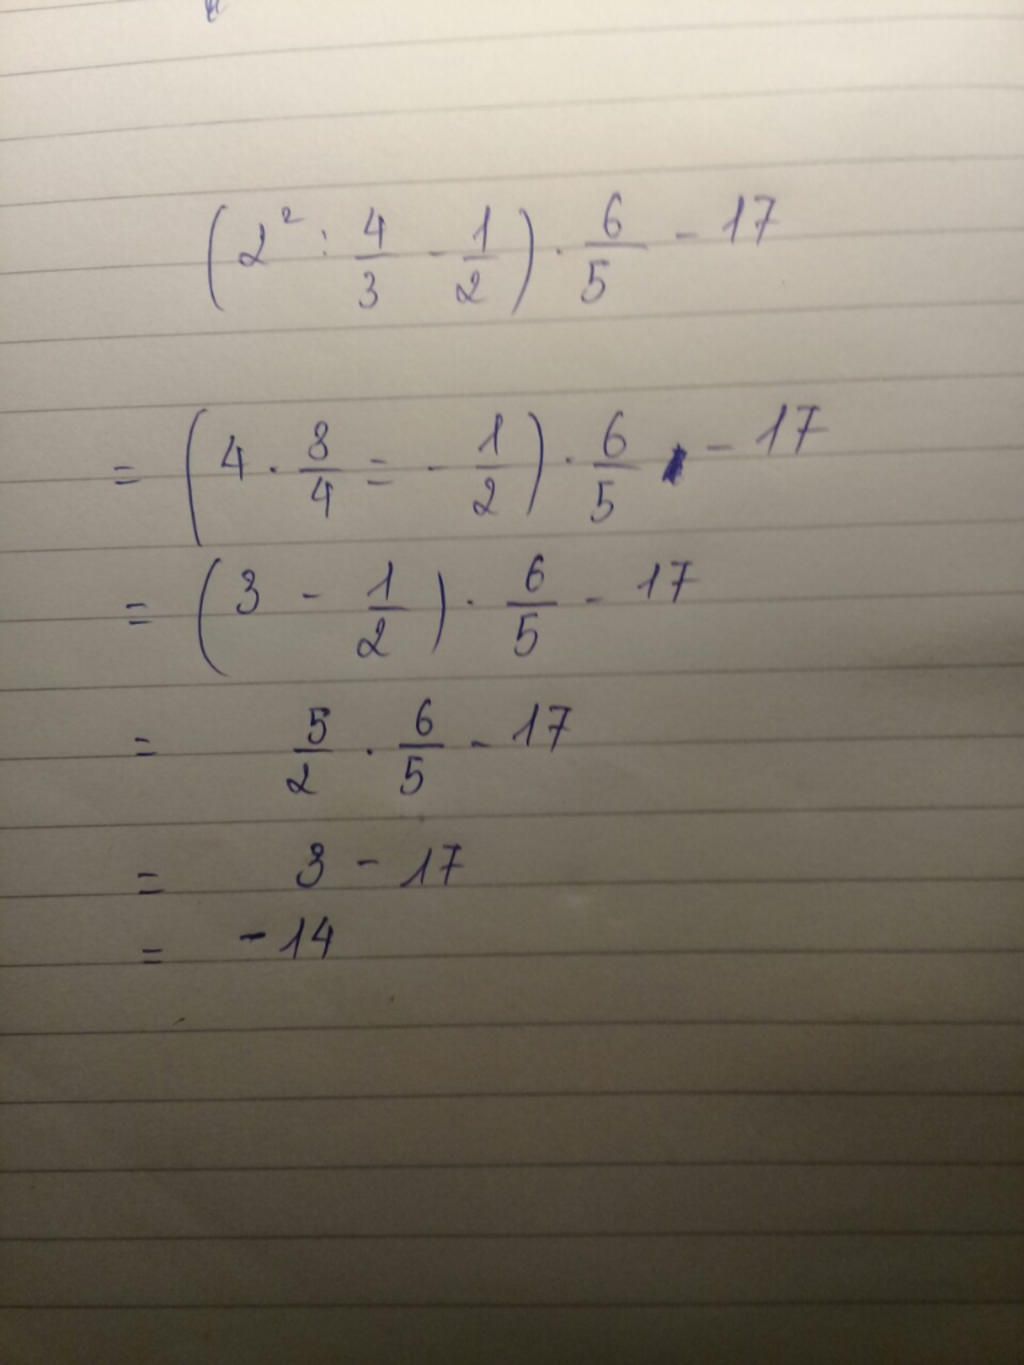 (2² : 4/3 - 1/2) · 6/5 - 17
= (4 · 3/4 = - 1/2) · 6/5 - 17
= (3 - 1/2) · 6/5 - 17
= 5/2 · 6/5 - 17
= 3 - 17
= -14